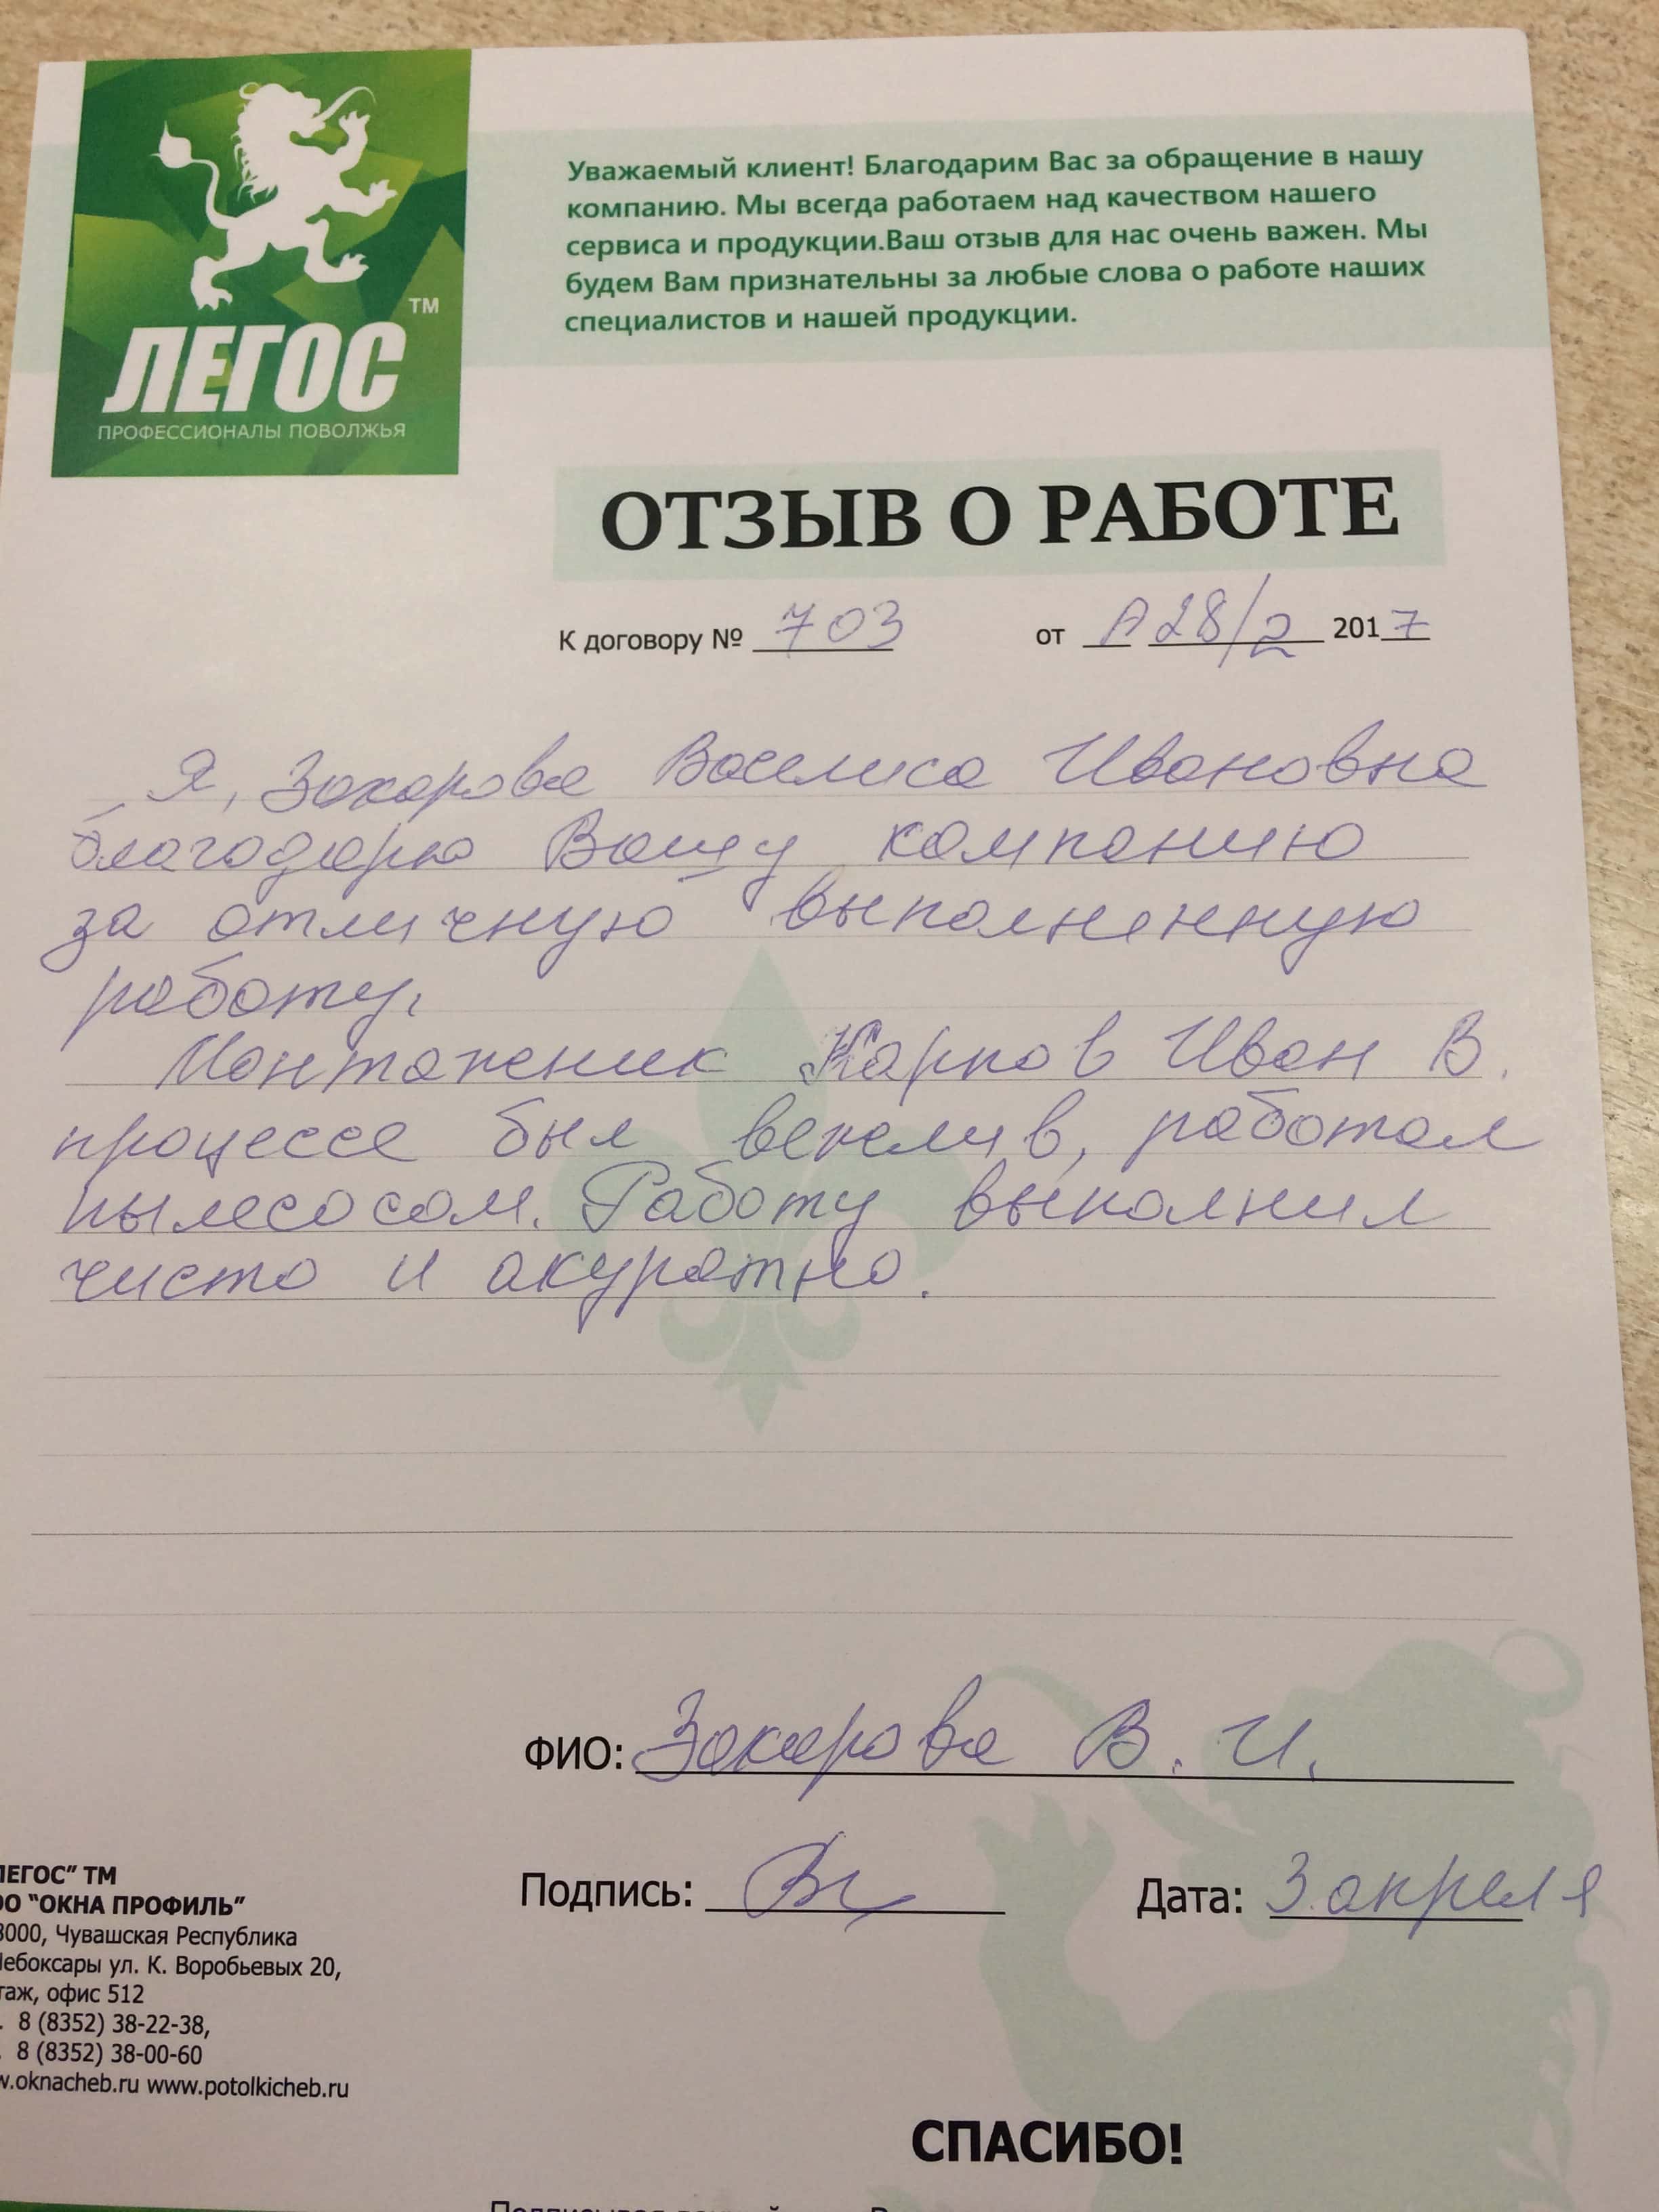 ЛЕГОС
TM
ПРОФЕССИОНАЛЫ ПОВОЛЖЬЯ
Уважаемый клиент! Благодарим Вас за обращение в нашу
компанию. Мы всегда работаем над качеством нашего
сервиса и продукции.Ваш отзыв для нас очень важен. Мы
будем Вам признательны за любые слова о работе наших
специалистов и нашей продукции.
ОТЗЫВ О РАБОТЕ
К договору № 703 от А 28/2 2017
Я, Захарова Василиса Ивановна
благодарю Вашу компанию
за отличную выполненную
работу.
Монтажник Карпов Иван В.
процессе был вежлив, работал
пылесосом. Работу выполнил
чисто и акуратно.
ФИО: Захарова В. И.
Подпись: Дата: 3 апреля
ЛЕГОС" ТМ
ОО "ОКНА ПРОФИЛЬ"
8000, Чувашская Республика
Чебоксары ул. К. Воробьевых 20,
таж, офис 512
. 8 (8352) 38-22-38,
. 8 (8352) 38-00-60
w.oknacheb.ru www.potolkicheb.ru
СПАСИБО!